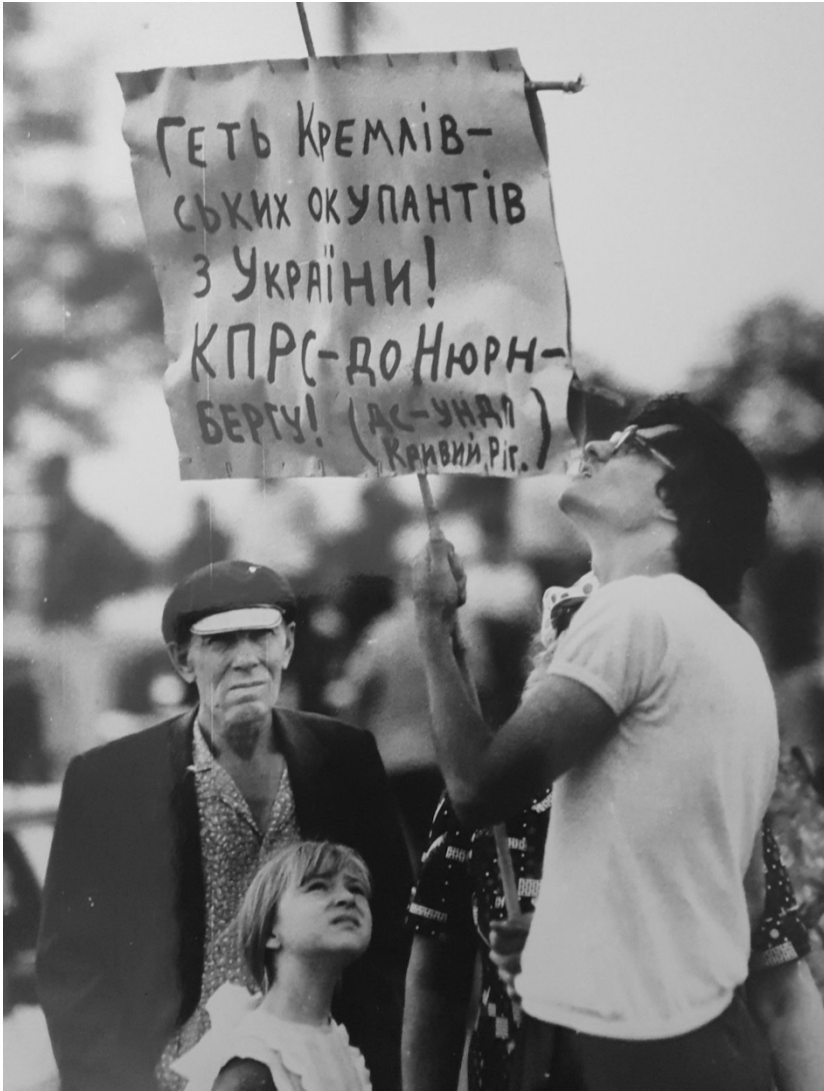 Геть Кремлів-
ських окупантів
з України!
КПРС-до Нюрн-
бергу! (ДС-УНДП
Кривий Ріг.)